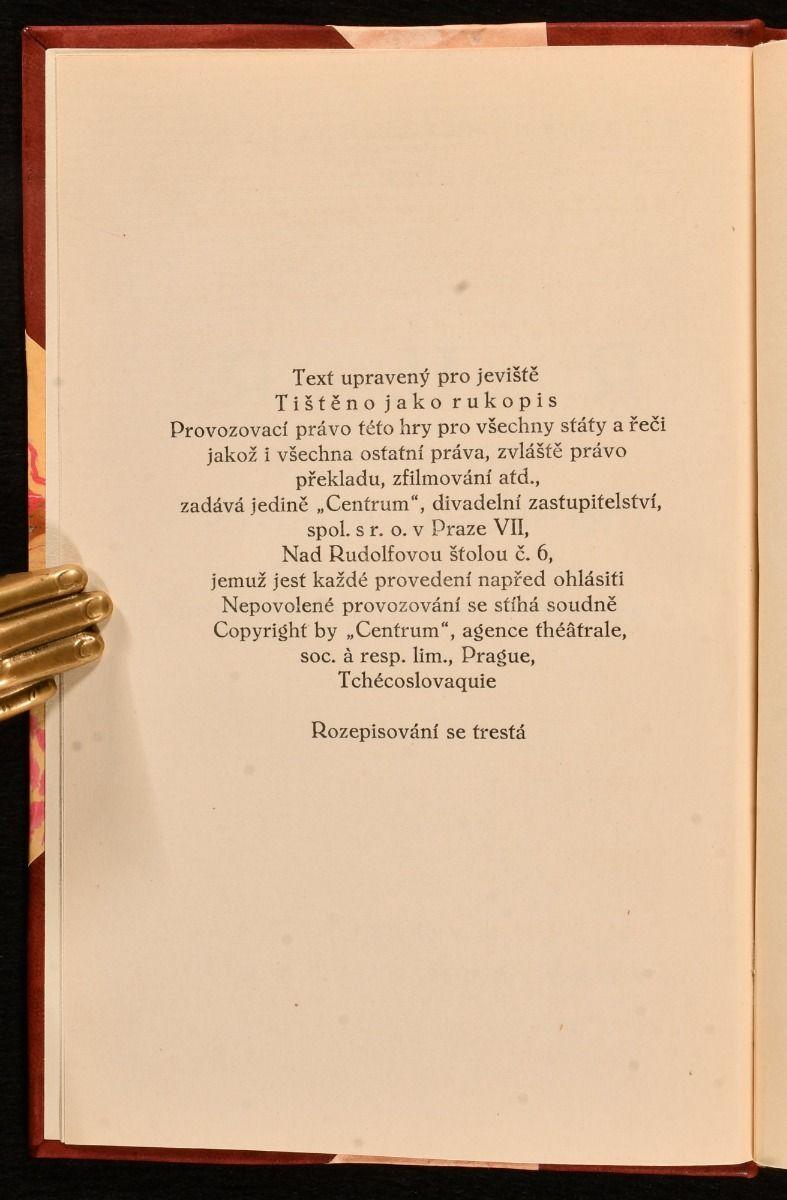 Text upravený pro jeviště
Tištěno jako rukopis
Provozovací právo této hry pro všechny státy a řeči
jakož i všechna ostatní práva, zvláště právo
překladu, zfilmování atd.,
zadává jedině „Centrum“, divadelní zastupitelství,
spol. s r. o. v Praze VII,
Nad Rudolfovou štolou č. 6,
jemuž jest každé provedení napřed ohlásiti
Nepovolené provozování se stíhá soudně
Copyright by „Centrum“, agence théâtrale,
soc. à resp. lim., Prague,
Tchécoslovaquie
Rozepisování se trestá